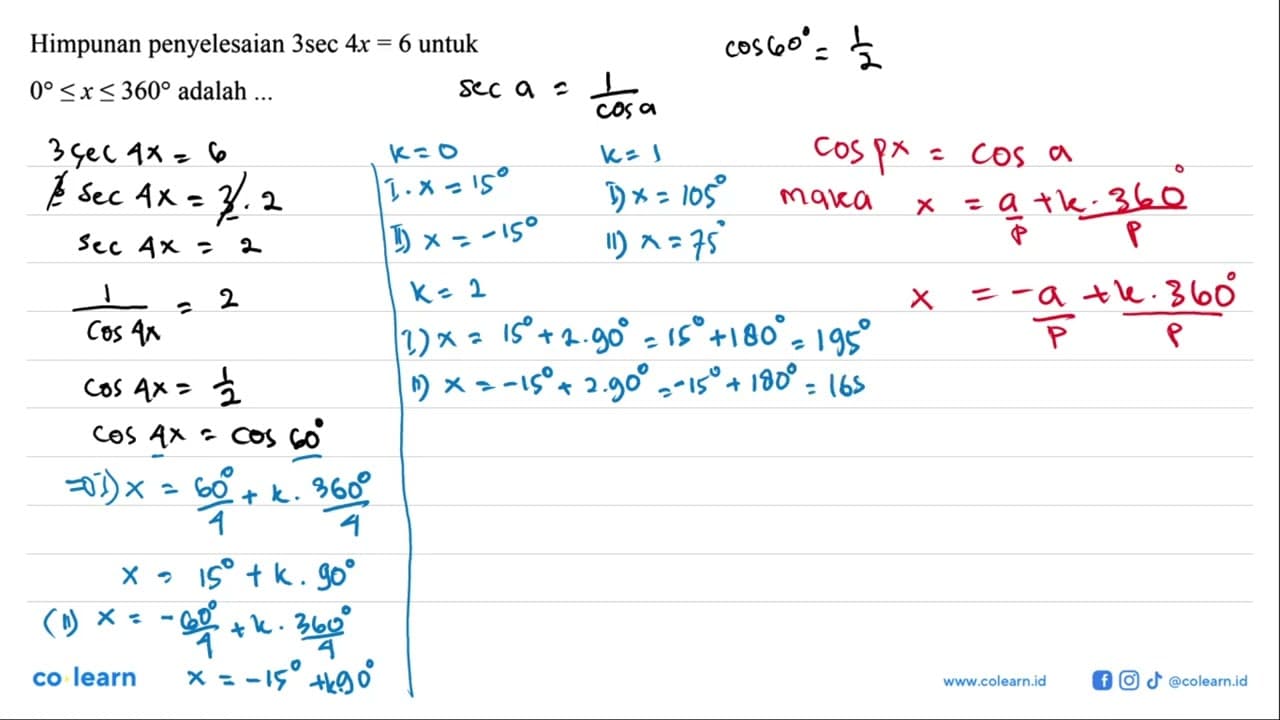 Himpunan penyelesaian 3sec 4x = 6 untuk
0° ≤ x ≤ 360° adalah ...
cos 60° = 1/2
sec a = 1/cos a
3 sec 4x = 6
3 sec 4x = 3 . 2
sec 4x = 2
1/cos 4x = 2
cos 4x = 1/2
cos 4x = cos 60°
⇒ I) x = 60°/4 + k . 360°/4
x = 15° + k . 90°
(II) x = -60°/4 + k . 360°/4
x = -15° + k.90°
k = 0
I. x = 15°
II) x = -15°
k = 1
I) x = 105°
II) x = 75°
k = 2
I) x = 15° + 2.90° = 15° + 180° = 195°
II) x = -15° + 2.90° = -15° + 180° = 165
cos px = cos a
maka x = a/p + k . 360°/p
x = -a/p + k . 360°/p
co learn
www.colearn.id
@colearn.id